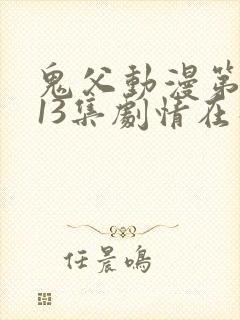 鬼父動漫第
13集劇情在
任晨鳴